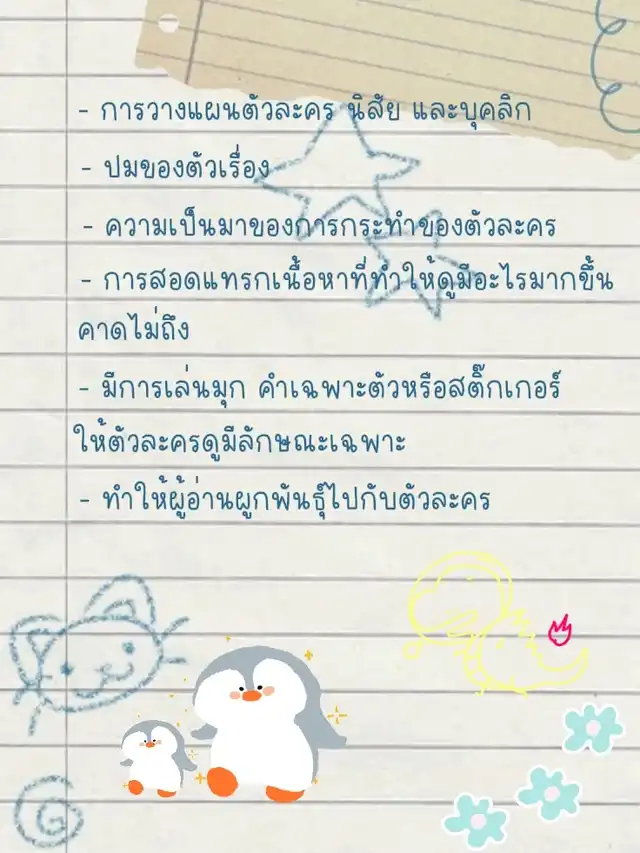 - การวางแผนตัวละคร นิสัย และบุคลิก
- ปมของตัวเรื่อง
- ความเป็นมาของการกระทำของตัวละคร
- การสอดแทรกเนื้อหาที่ทำให้ดูมีอะไรมากขึ้น
คาดไม่ถึง
- มีการเล่นมุก คำเฉพาะตัวหรือสติ๊กเกอร์
ให้ตัวละครดูมีลักษณะเฉพาะ
- ทำให้ผู้อ่านผูกพันธุ์ไปกับตัวละคร